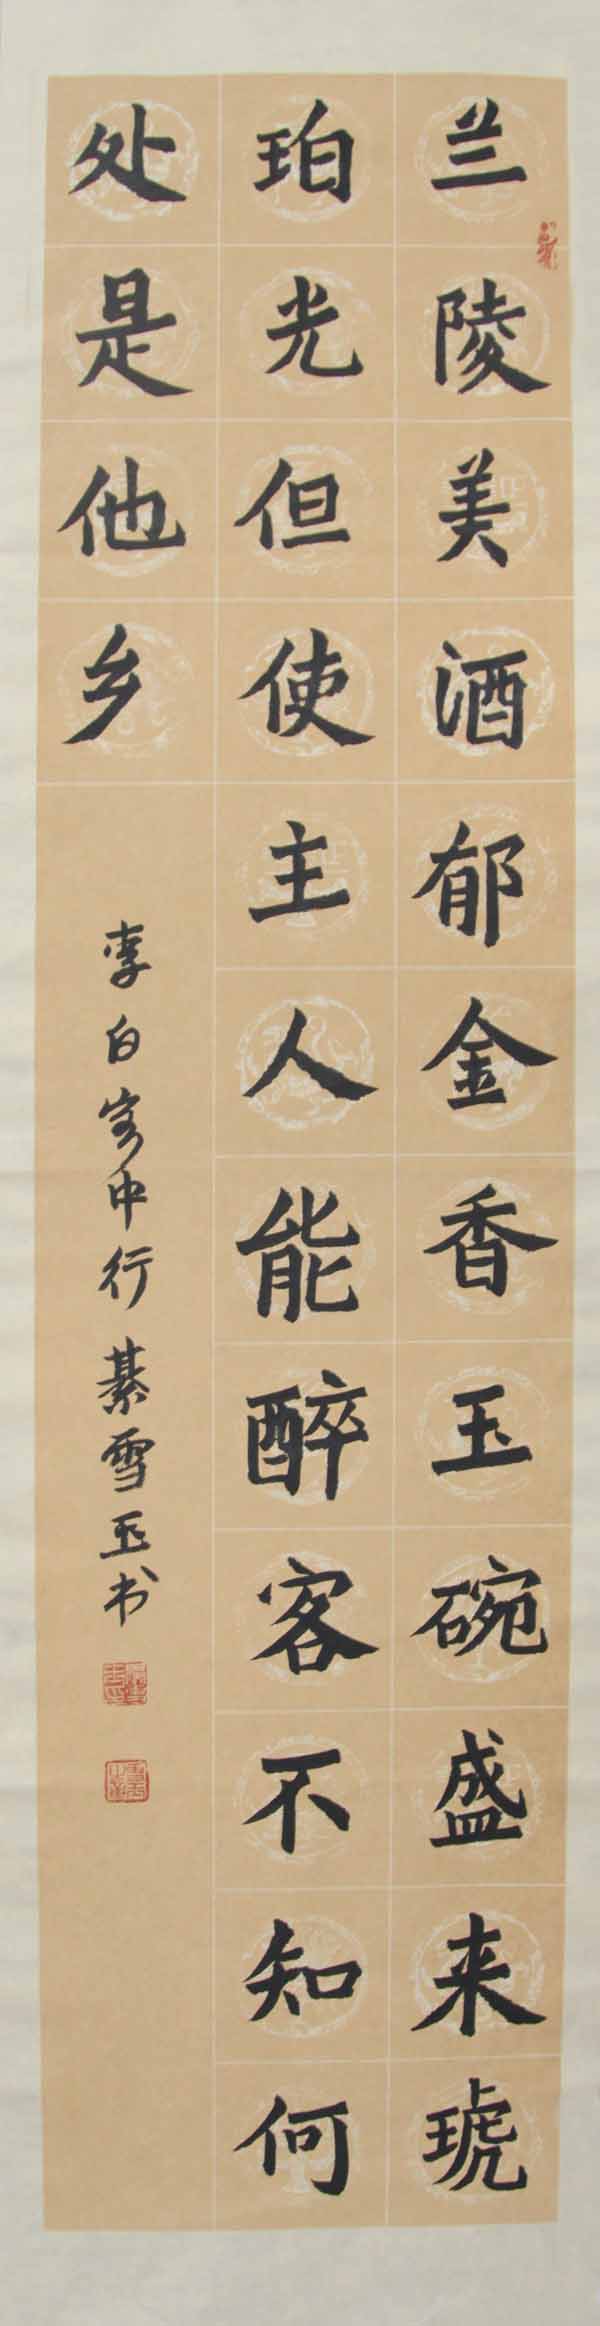 兰陵美酒郁金香玉碗盛来琥
珀光但使主人能醉客不知何
处是他乡
李白客中行 綦雪玉书